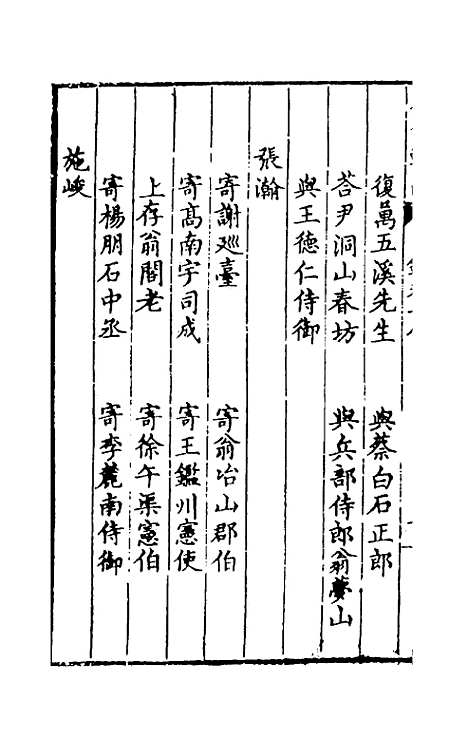 復萬五溪先生　與蔡白石正郎
荅尹洞山春坊　與兵部侍郎翁夢山
與王德仁侍御
張瀚
寄謝巡臺　寄翁冶山郡伯
寄髙南宇司成　寄王鑑川憲使
上存翁閣老　寄徐午渠憲伯
寄楊朋石中丞　寄李麓南侍御
施峻